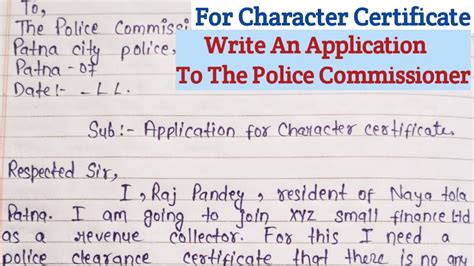 For Character Certificate
Write An Application
To The Police Commissioner
To,
The Police Commissi
Patna city police,
Patna - 07
Date:- _LL.
Sub:- Application for Character certificate.
Respected Sir,
I, Raj Pandey, resident of Naya tola
Patna. I am going to join XYZ small finance Ltd
as a revenue collector. For this I need a
police clearance certificate that there is no any